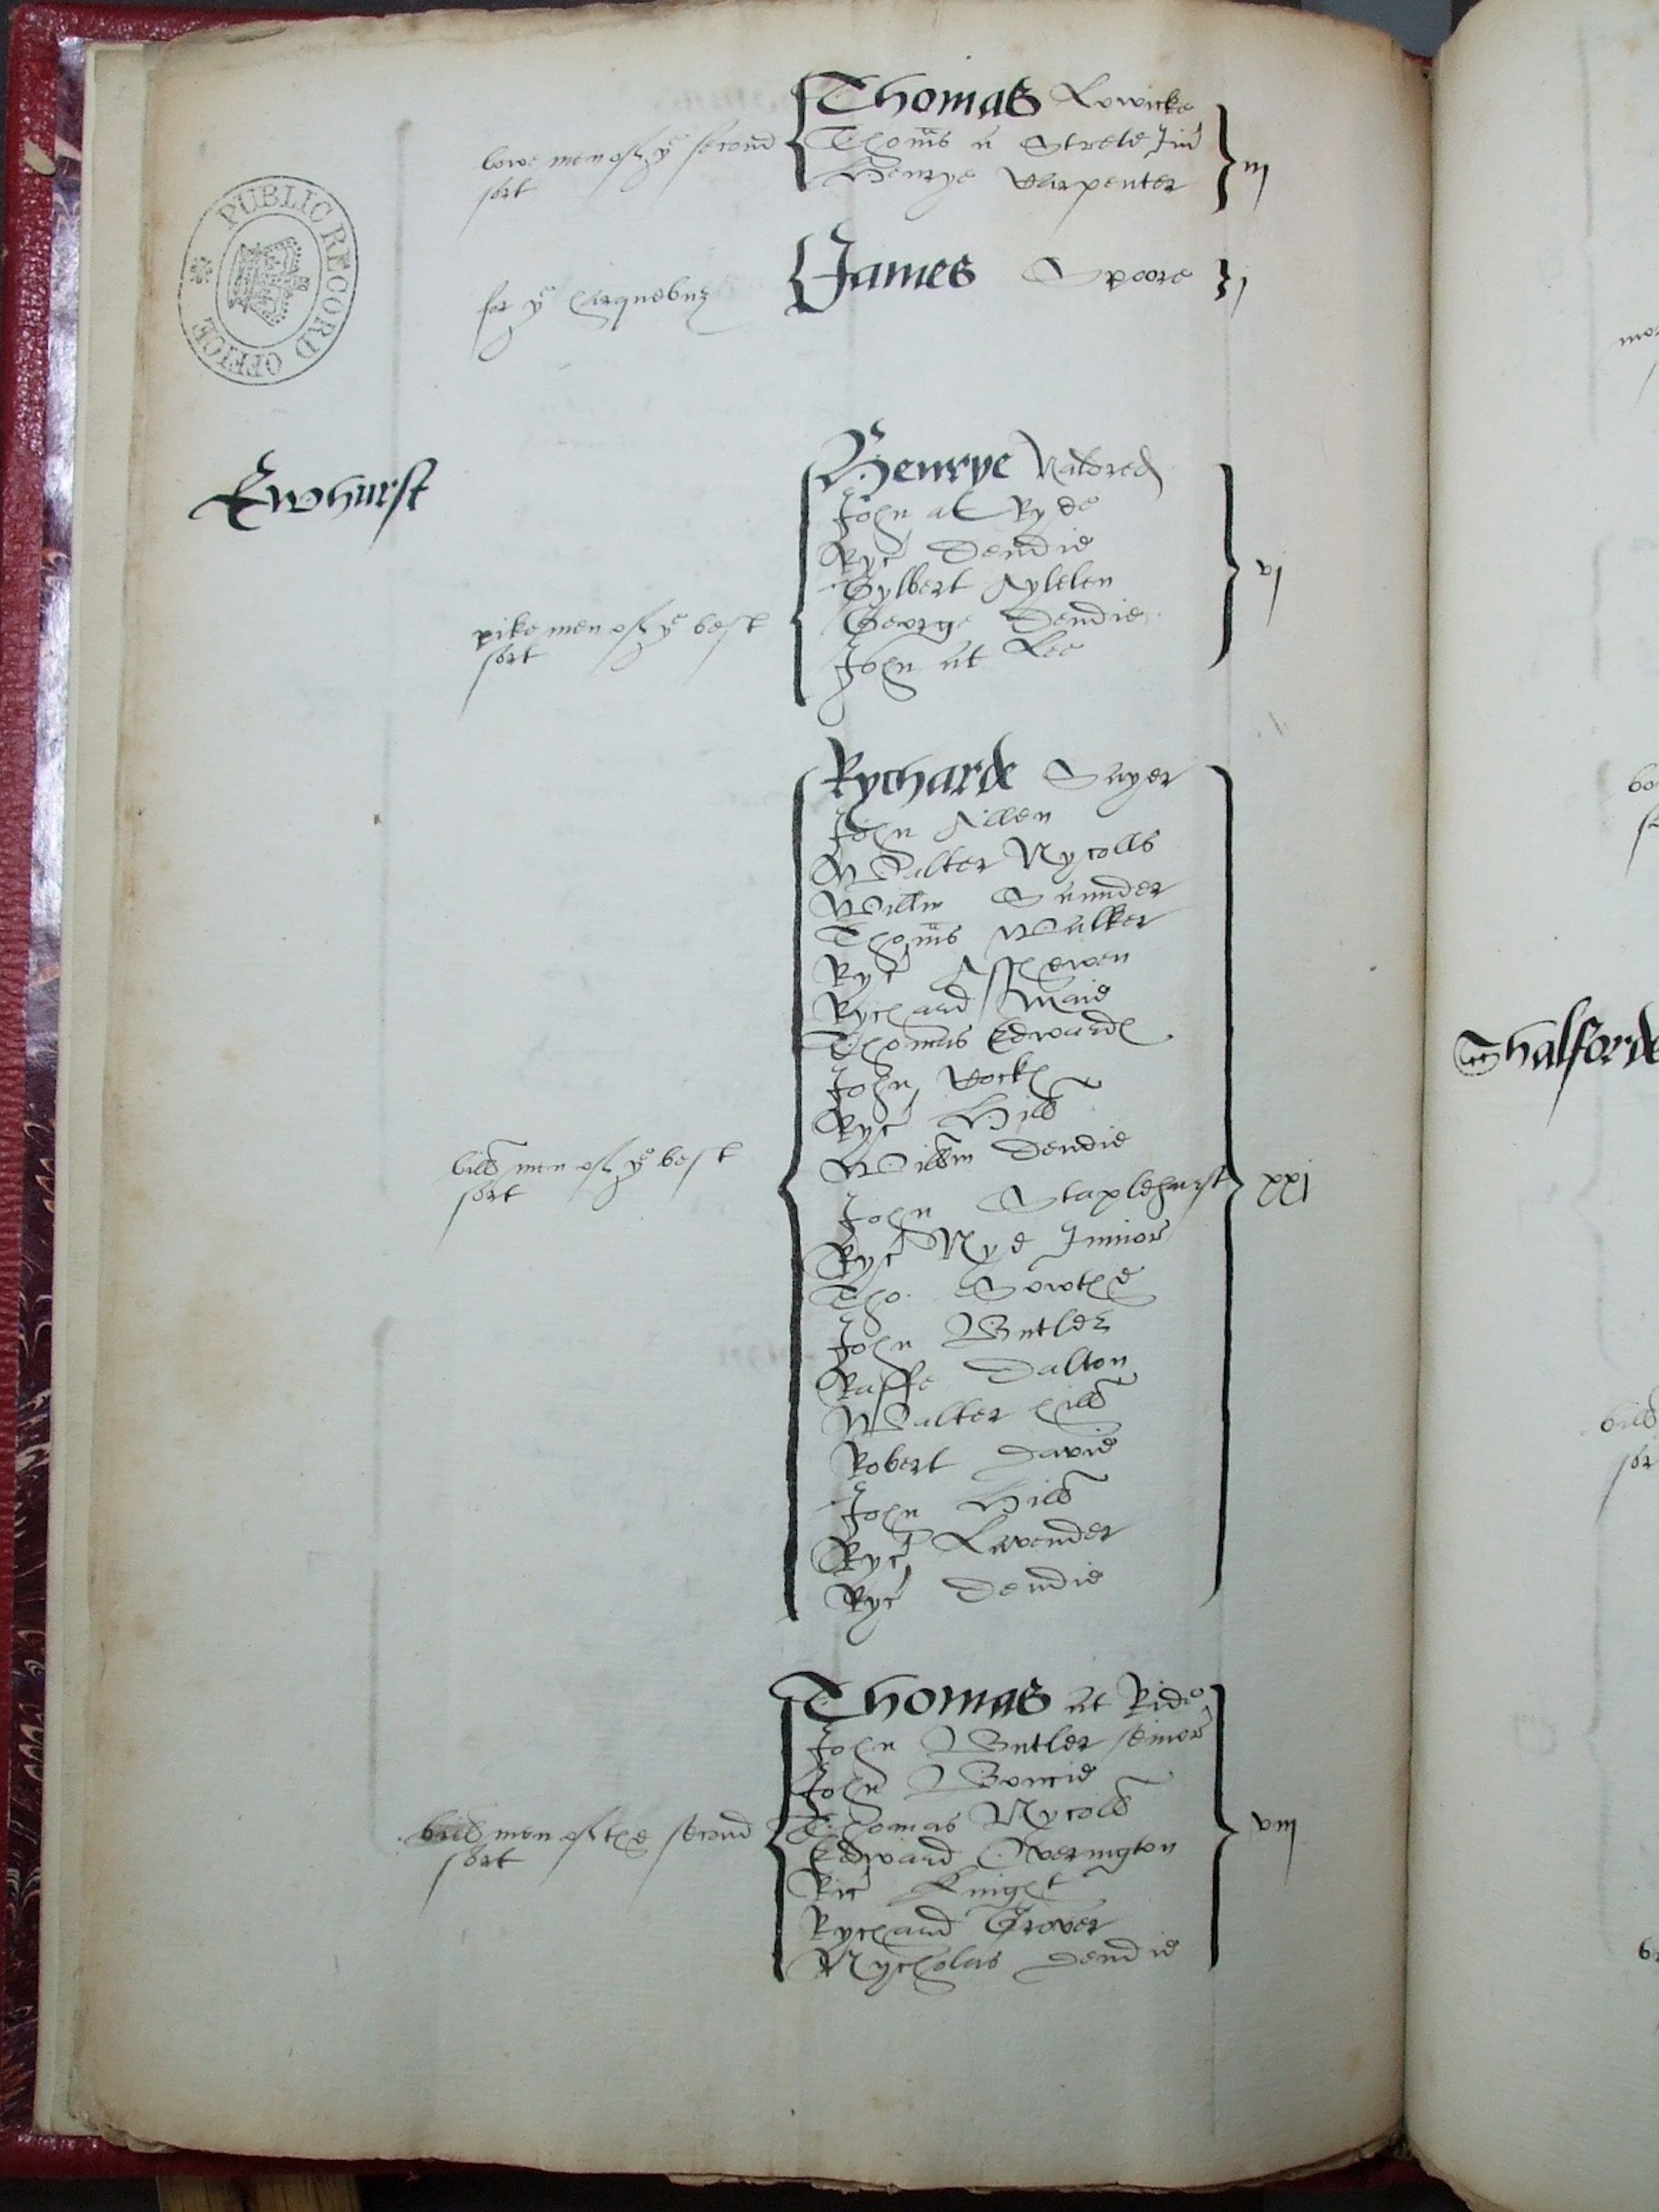 PUBLIC RECORD OFFICE
bowe men of ye second
sort
Thomas Lowicke
Thoms a Strete Jun
Henrye Carpenter
iij
for ye harquebuz
James Spoore
j
Ewhurst
pike men of ye best
sort
Henrye
John at Ryde
Ryc Dendie
Gylbert
George Dendie
John at Lee
vj
bill men of ye best
sort
Rycharde Sayer
John Allen
Walter Nycolls
Willm Saunder
Thoms Walker
Ryc
Rychard Maie
Thomas Edwards
John Cocks
Ryc Hill
Willm Dendie
John Staplehurst
Ryc Nye Junior
Tho. Sowthe
John Butler
Raffe Dalton
Walter hill
Robert Davie
John Hill
Ryc Lavender
Ryc Dendie
xxj
bill men of the second
sort
Thomas at Ride
John Butler senior
John
Thomas Nycoll
Edward Overington
Ric Knight
Rychard Grover
Nycholas Dendie
viij
Shalforde